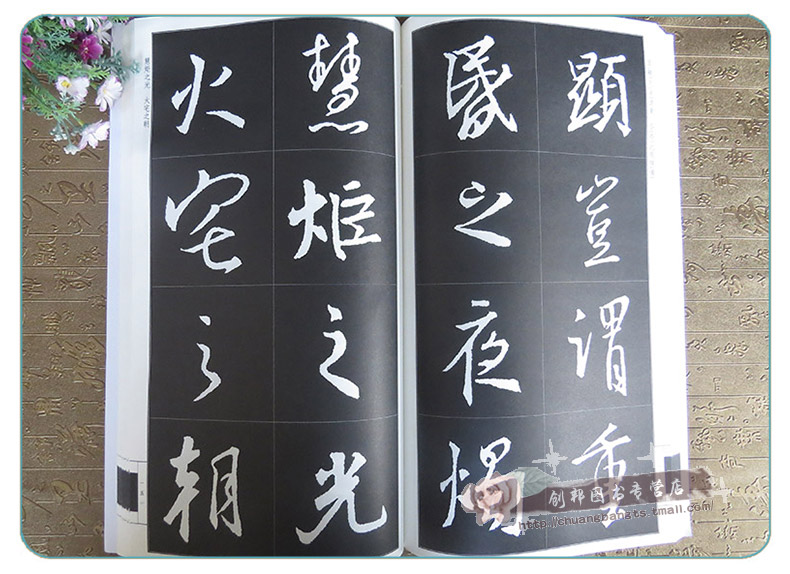 顯豈謂重
昏之夜燭
慧炬之光
火宅之朝
慧炬之光 火宅之朝
创邦图书专营店
http://chuangbangts.tmall.com/